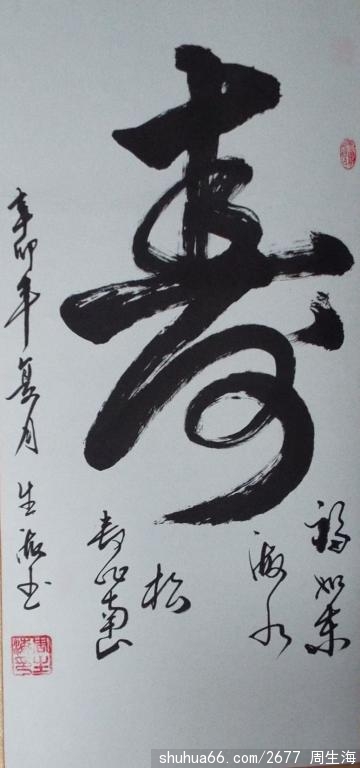 寿
福如东
海水
寿比南山
松
辛卯年夏月 生海书
shuhua66.com/2677 周生海